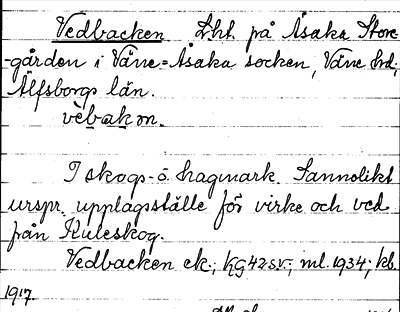 Vedbacken Lht. på Åsaka Store-
-gården i Väne-Åsaka socken, Väne hd,
Älfsborgs län.
vèbakən.
I skogs- o. hagmark. Sannolikt
urspr. upplagsställe för virke och ved
från Kuleskog.
Vedbacken ek.; KG42SV.; ml. 1934; kb.
1917.